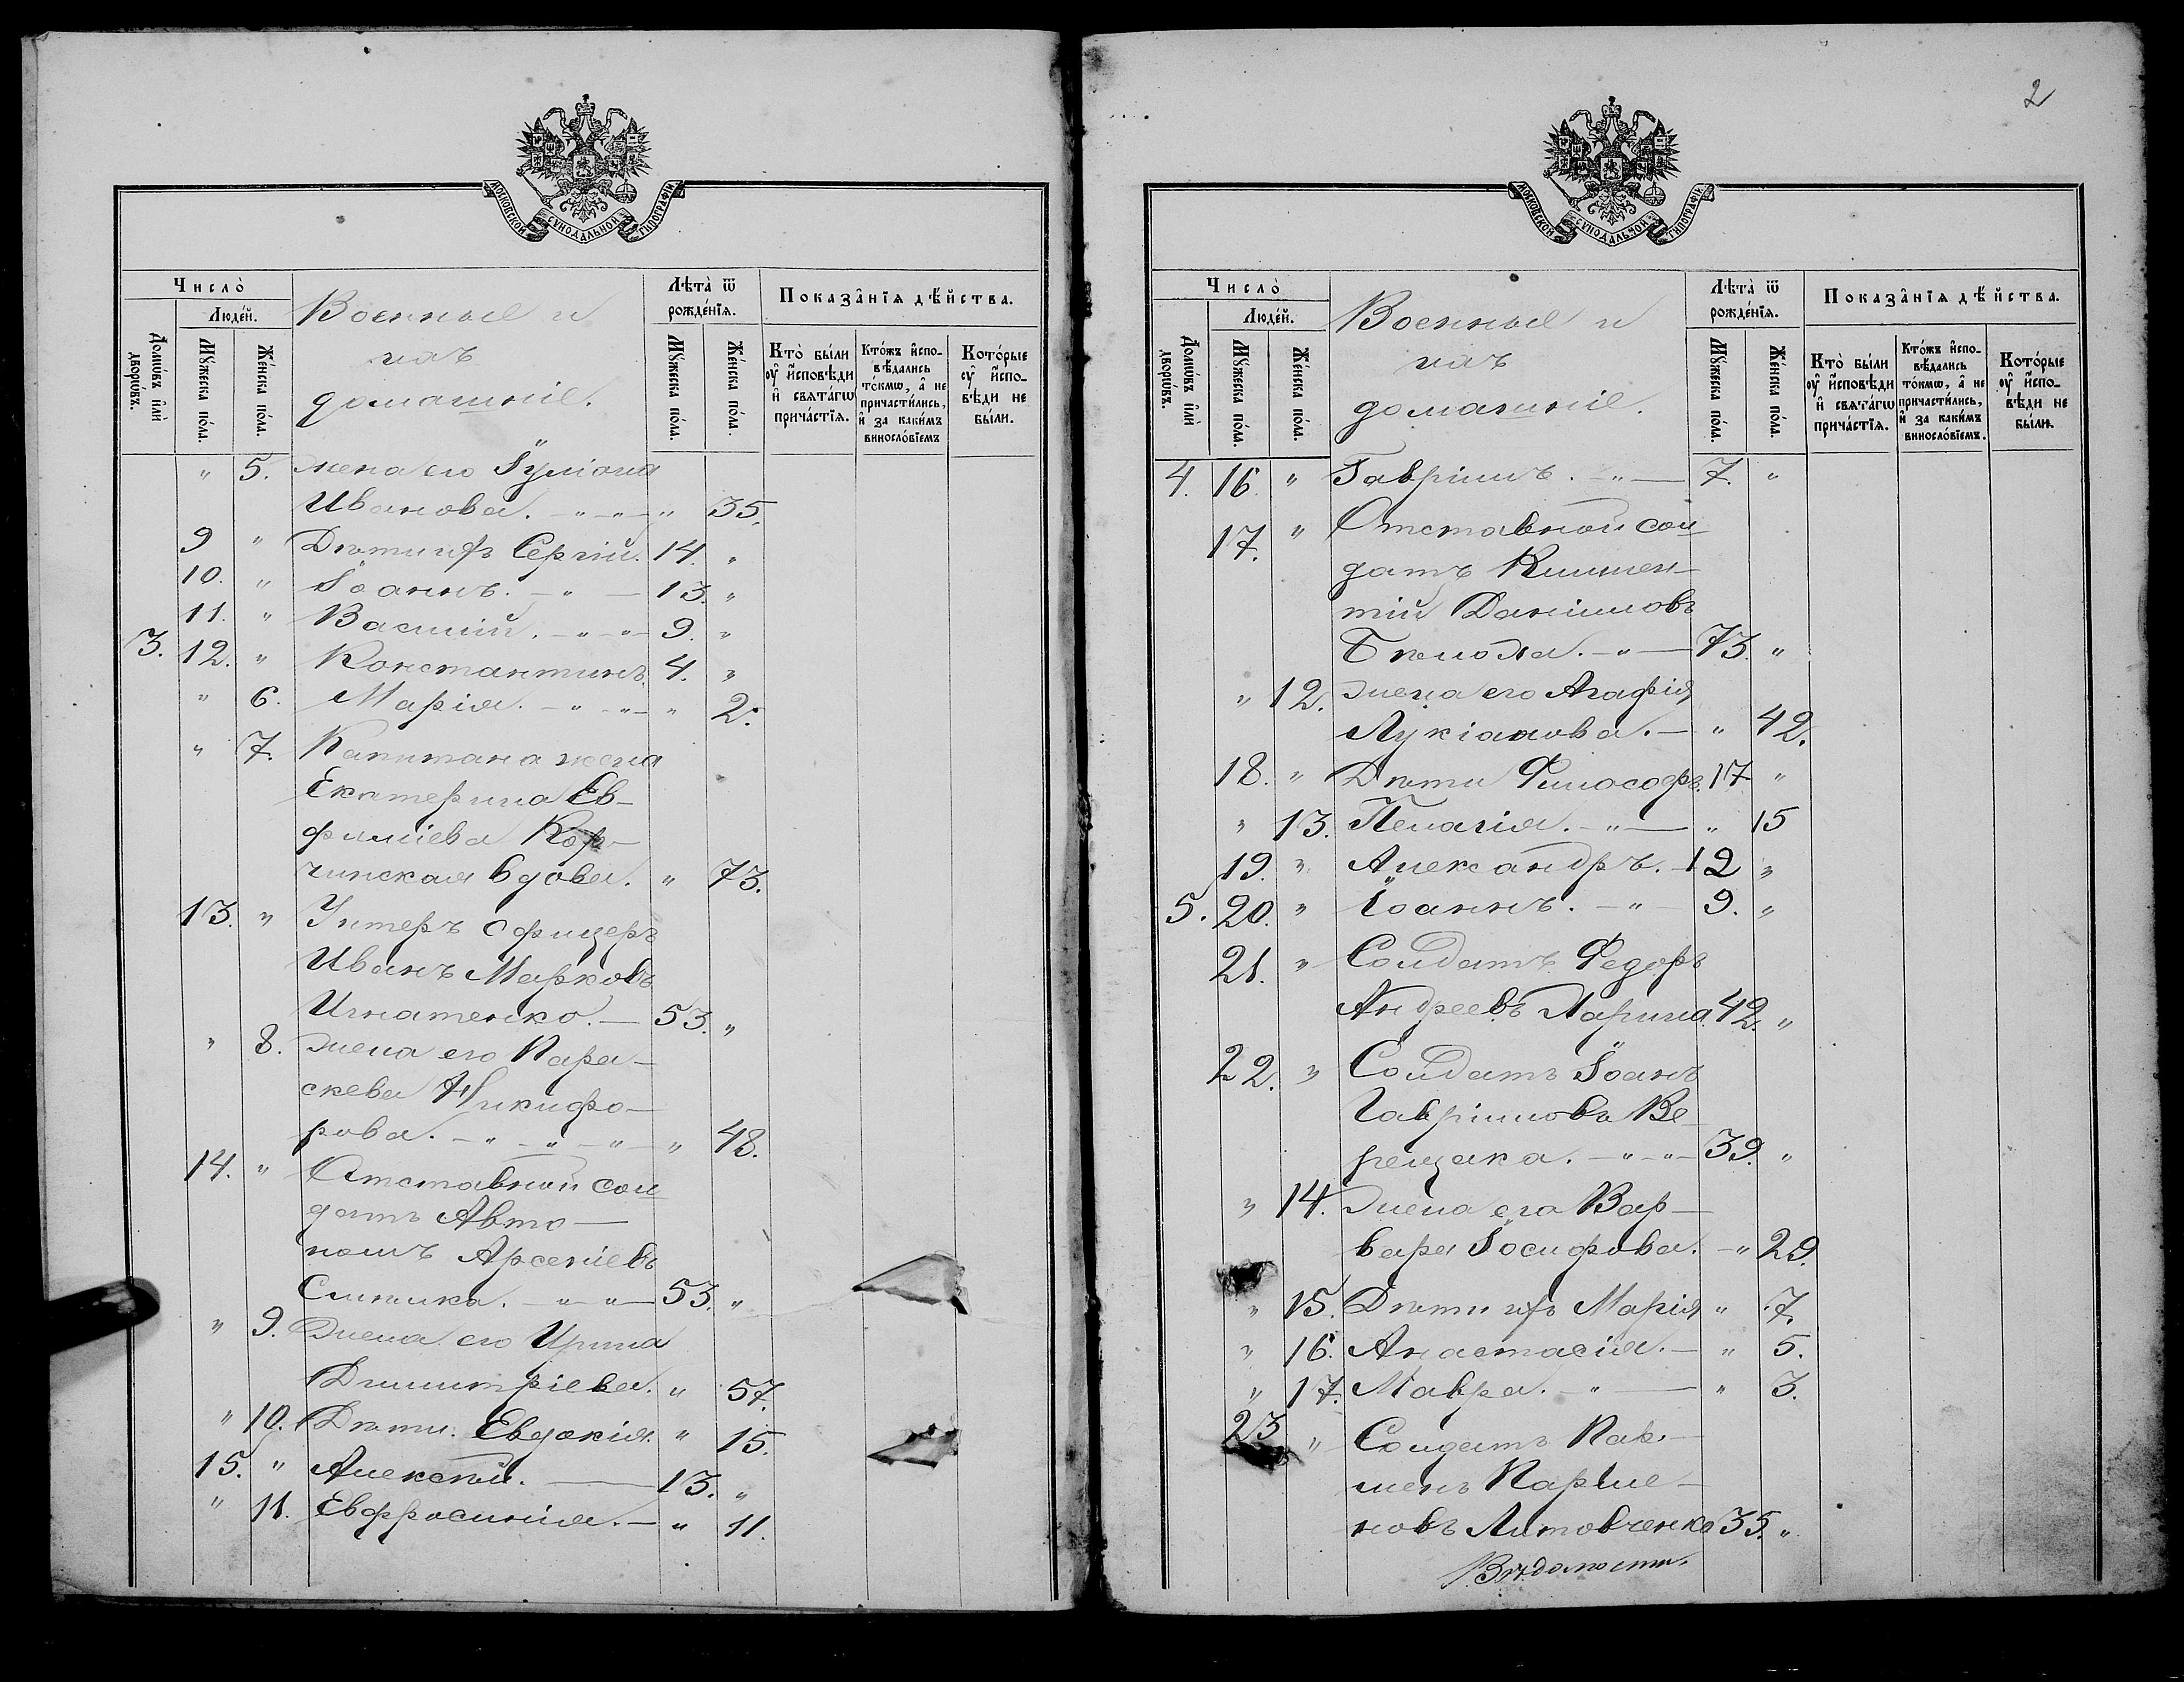 МОСКОВСКОЙ СУНОДАЛЬНОЙ ТИПОГРАФІИ
Число̀
Людей.
Домѡ́въ и҆лѝ дворѡ́въ.
Мꙋ́жеска по́ла.
Же́нска по́ла.
Военные и
ихъ
домашніе.
Лѣта̀ ѿ рожде́нїѧ.
Мꙋ́жеска по́ла.
Же́нска по́ла.
Показа̂нїѧ дѣ́йства.
Кто̀ бы́ли ᲂу҆ и҆сповѣди и҆ свѧта́гѡ прича́стїѧ.
Кто́жъ и҆спо-вѣдались то́кмѡ, а҆ не причасти́лись, и҆ за каки́мъ винословїемъ
Кото́рые ᲂу҆ и҆спо-вѣди не бы́ли.
" 5. жена его Іуліана
Иванова. - " - " - " 35.
9 " Дѣти ихъ Сергій. 14. "
10. " Іоаннъ. - " - 13. "
11. " Василій. - " - " - 9. "
3. 12. " Константинъ. 4. "
" 6. Марія. - " - " - " 2.
" 7. Капитана жена
Екатерина Ев-
фиміева Кор-
чинская вдова. " 73.
13. " Унтеръ офицеръ
Иванъ Марковъ
Игнатенко. - 53. "
" 8. Жена его Пара-
скева Никифо-
рова. - " - " - " - " 48.
14. " Отставной сол
датъ Авто-
номъ Арсеніевъ
Слиника. - " - " - 53. "
" 9. Жена его Ирина
Димитріева. " 57.
" 10. Дѣти: Евдокія. " 15.
15. " Алексѣй. - 13. "
" 11. Евфросинія. - " 11.
2
МОСКОВСКОЙ СУНОДАЛЬНОЙ ТИПОГРАФІИ
Число̀
Людей.
Домѡ́въ и҆лѝ дворѡ́въ.
Мꙋ́жеска по́ла.
Же́нска по́ла.
Военные и
ихъ
домашніе.
Лѣта̀ ѿ рожде́нїѧ.
Мꙋ́жеска по́ла.
Же́нска по́ла.
Показа̂нїѧ дѣ́йства.
Кто̀ бы́ли ᲂу҆ и҆сповѣди и҆ свѧта́гѡ прича́стїѧ.
Кто́жъ и҆спо-вѣдались то́кмѡ, а҆ не причасти́лись, и҆ за каки́мъ винословїемъ.
Кото́рые ᲂу҆ и҆спо-вѣди не бы́ли.
4. 16. " Гавріилъ. - " - 7. "
17. " Отставной сол
датъ Климен-
тій Даніиловъ
Бѣлоха. - " - 73. "
" 12. Жена его Агафія
Лукіанова. - " 42.
18. " Дѣти Философъ. 17 "
" 13. Пелагія. - " - " 15
19. " Александръ. - 12 "
5. 20. " Іоаннъ. - " - 9. "
21. " Солдатъ Федоръ
Андреевъ Ларина. 42. "
22. " Солдатъ Іоанъ
Гавріиловъ Ве-
рещака. - " - " - 39. "
" 14. Жена его Вар-
вара Іосифова. - " 29.
" 15. Дѣти ихъ Марія " 7.
" 16. Анастасія. - " 5.
" 17. Мавра. - " - " 3.
23 " Солдатъ Пар-
менъ Парме-
новъ Литовченко 35. "
Вѣдомости.